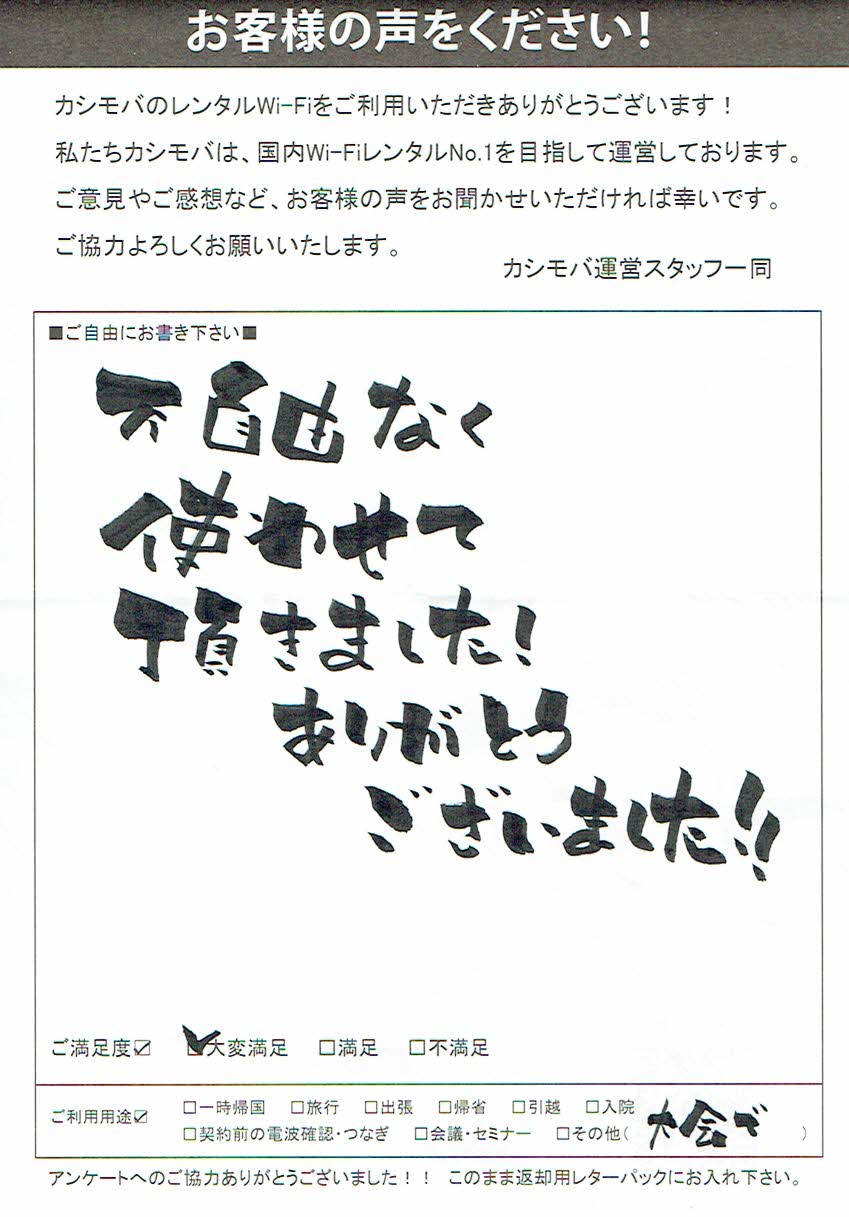 お客様の声をください!
カシモバのレンタルWi-Fiをご利用いただきありがとうございます！
私たちカシモバは、国内Wi-FiレンタルNo.1を目指して運営しております。
ご意見やご感想など、お客様の声をお聞かせいただければ幸いです。
ご協力よろしくお願いいたします。
カシモバ運営スタッフ一同
■ご自由にお書き下さい■
不自由なく
使わせて
頂きました!
ありがとう
ございました!!
ご満足度☑ ☑大変満足 □満足 □不満足
ご利用用途☑ □一時帰国 □旅行 □出張 □帰省 □引越 □入院
□契約前の電波確認・つなぎ □会議・セミナー □その他( 大会で )
アンケートへのご協力ありがとうございました！！ このまま返却用レターパックにお入れ下さい。